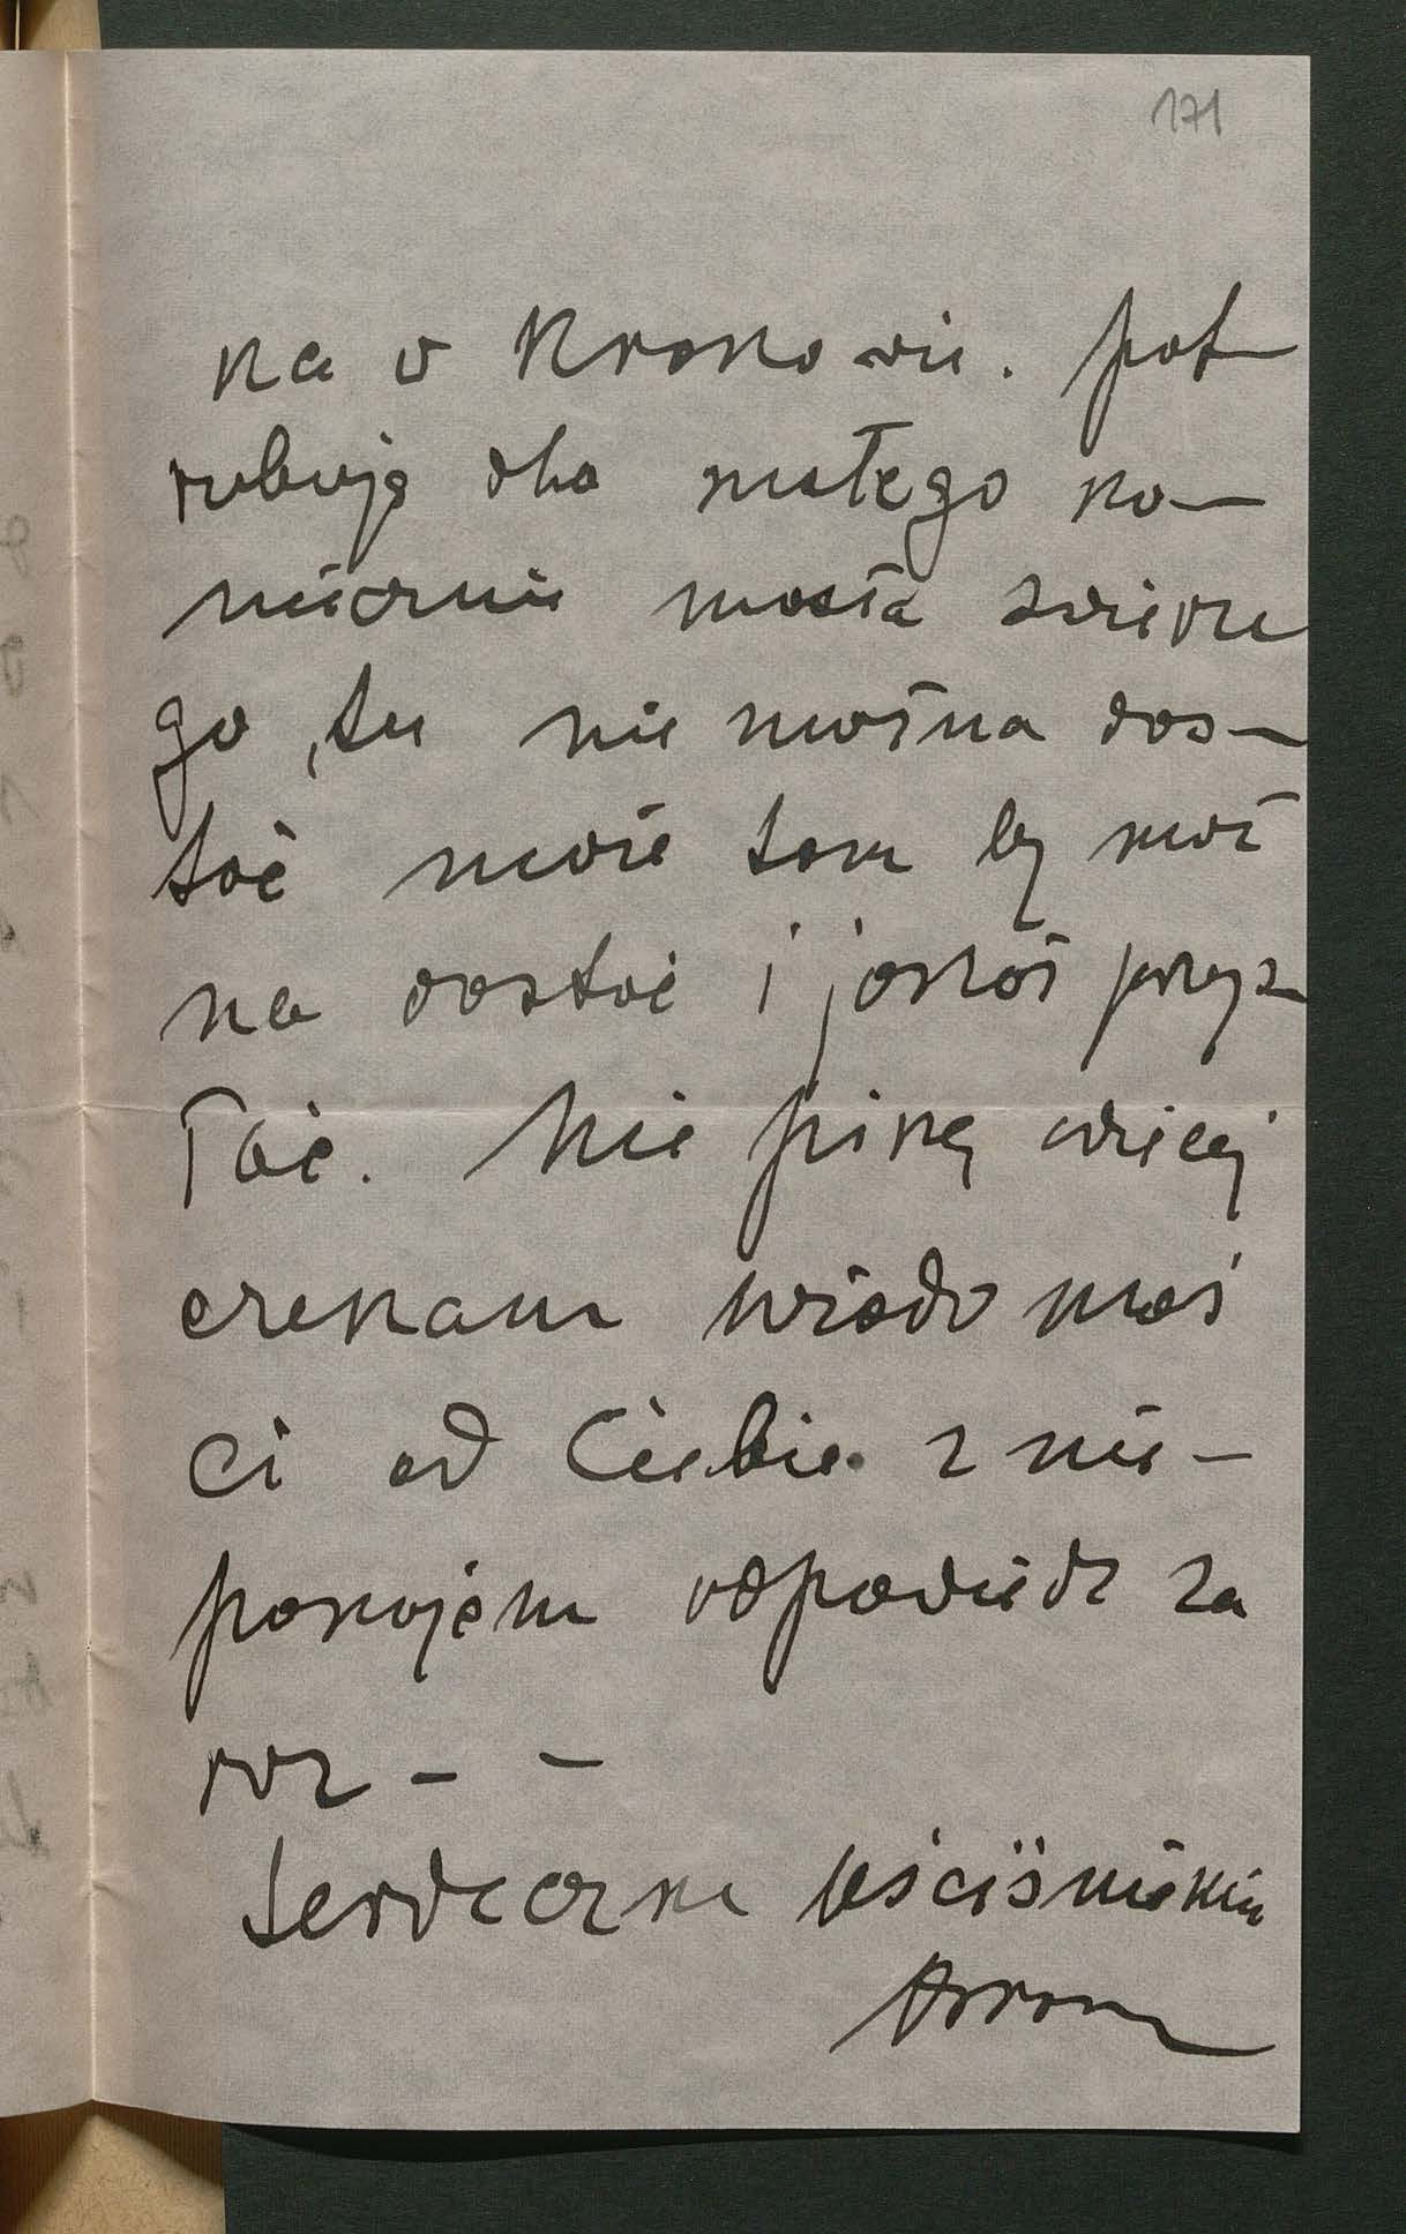 171
na w Krakowie. pot-
rebuję dla małego ko-
niecznie masła świeże
go, tu nie można dos-
tać może tam by moż
na dostać i jakoś przys-
łać. Nie piszę więcej
czekam wiadomoś
ci od Ciebie z nie-
pokojem odpowiedz za
raz - -
Serdeczne uściśnienia